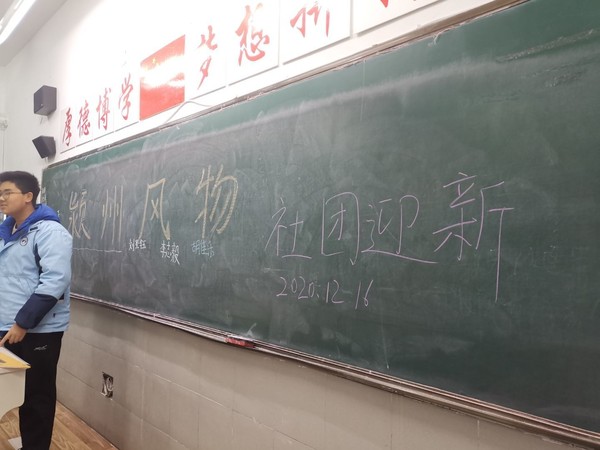 厚德博学
梦想
颍州风物
社团迎新
2020.12-16